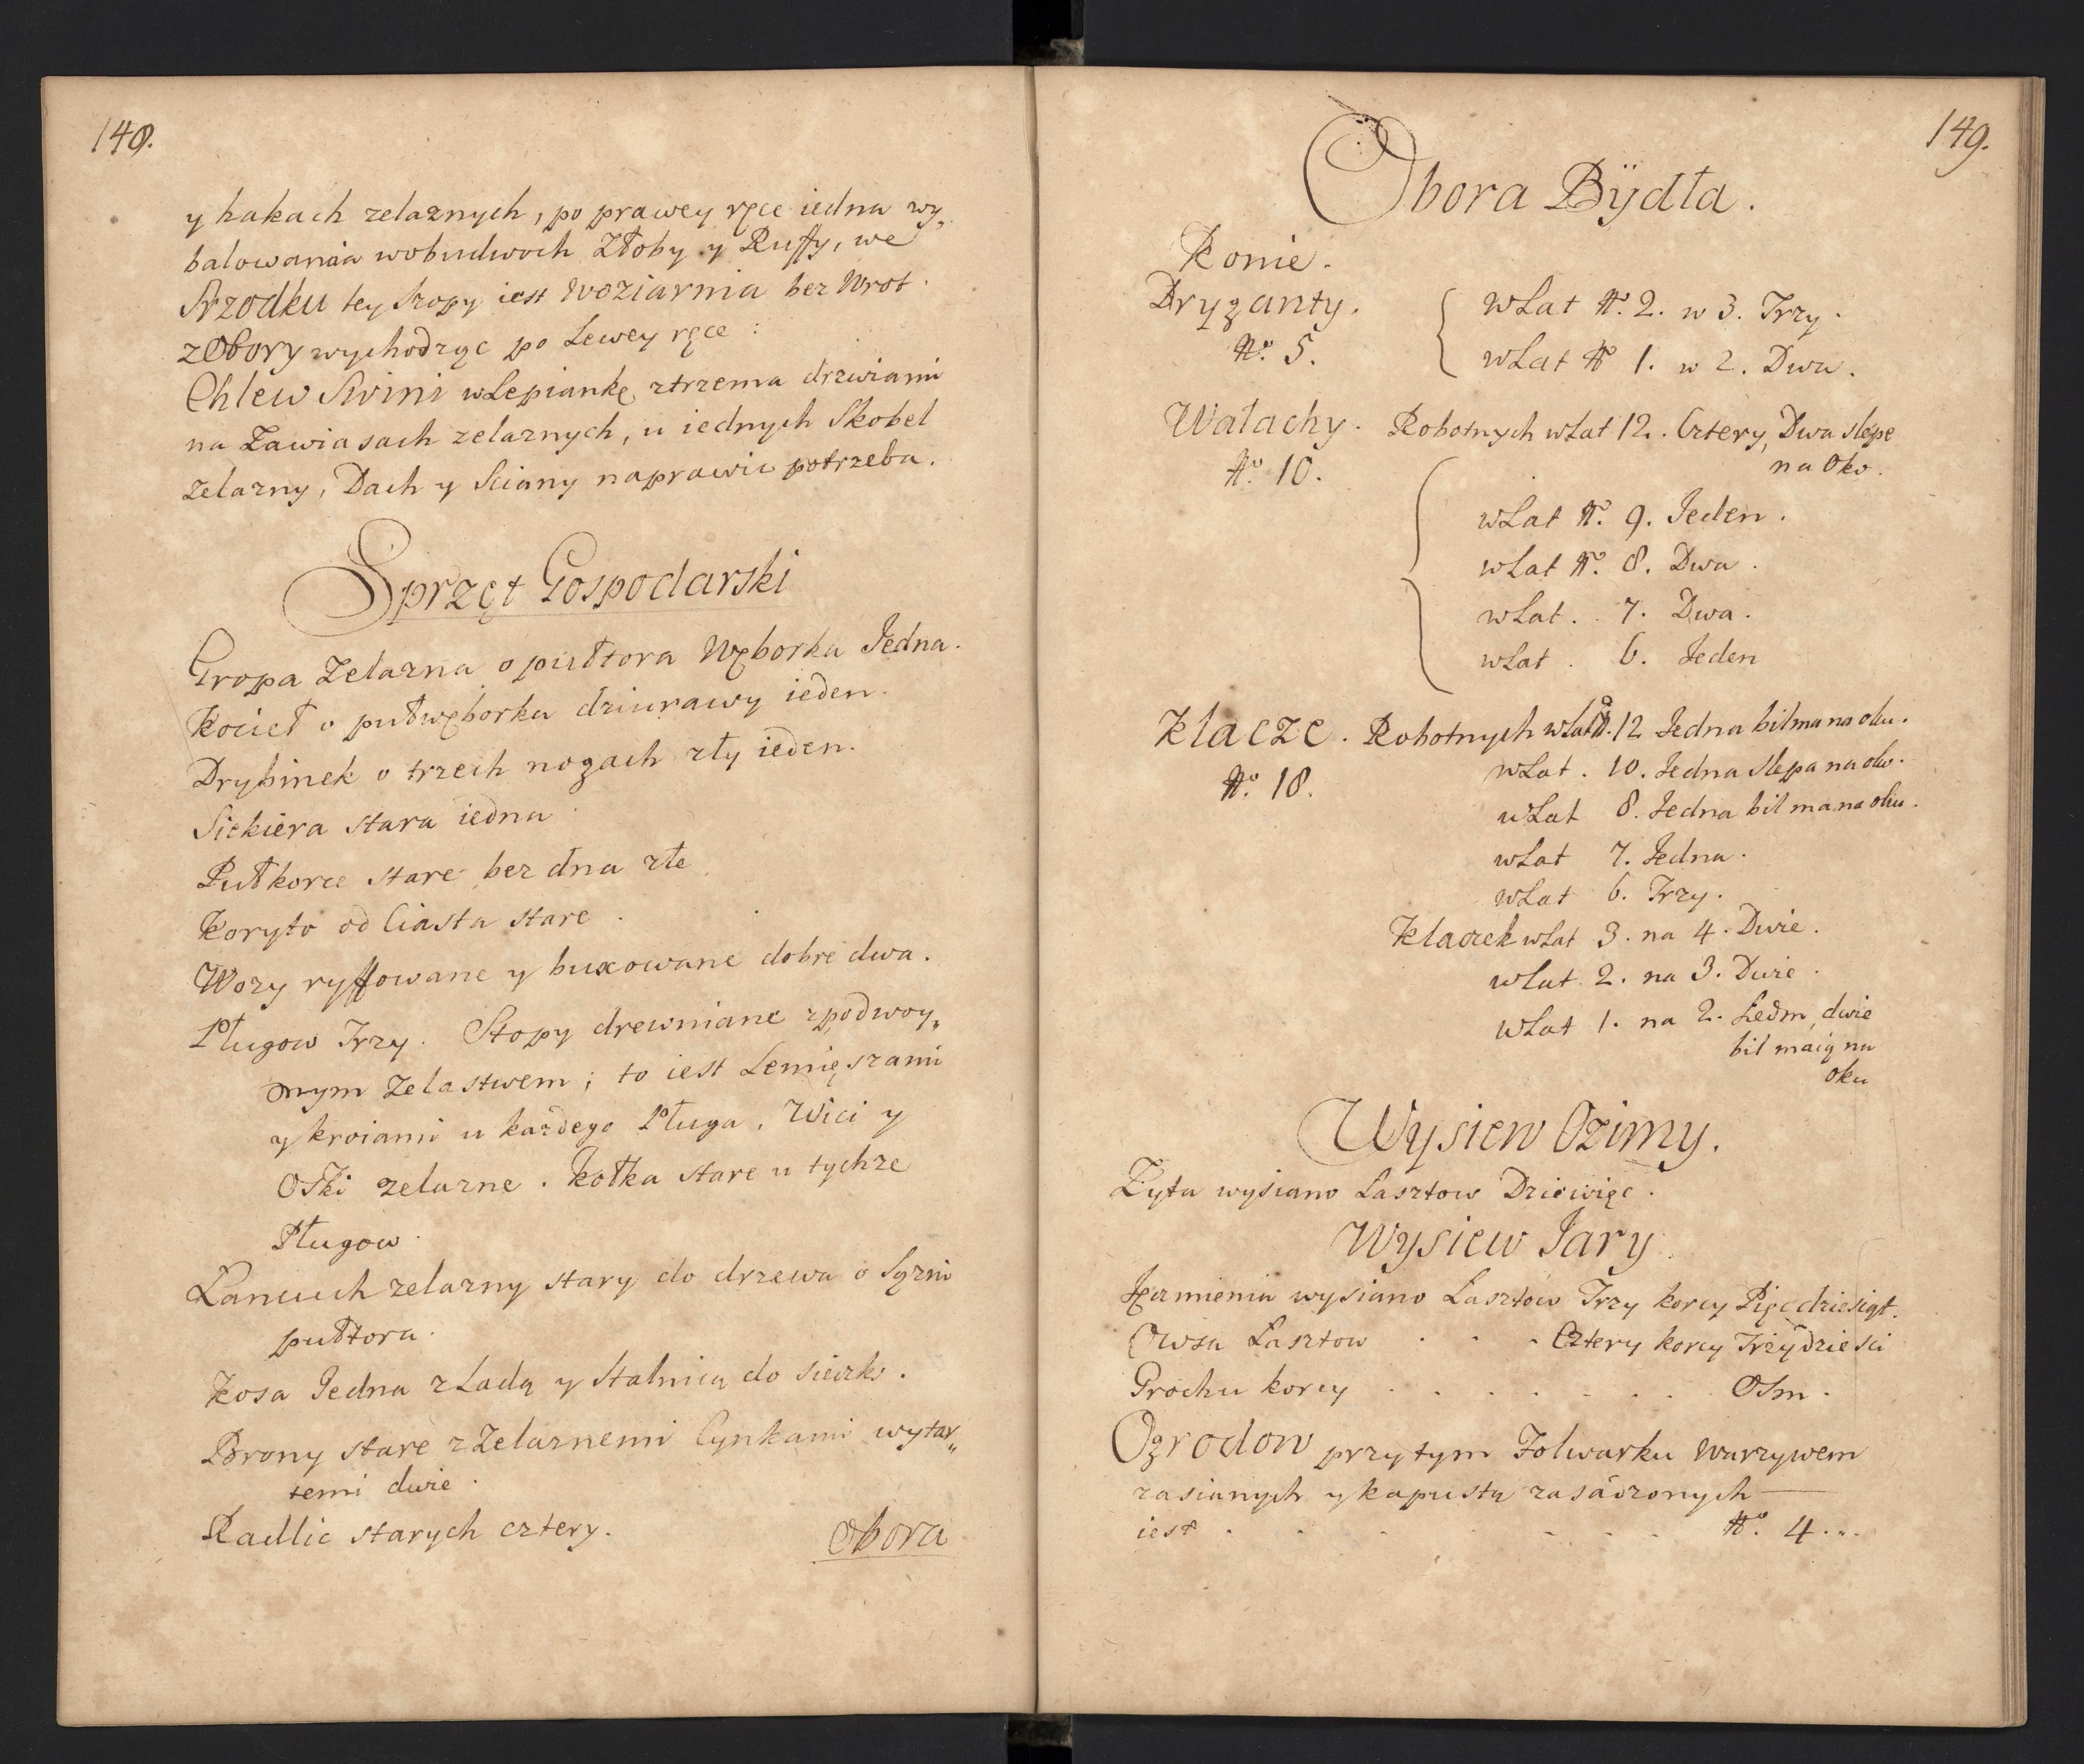 148.
y hakach zelaznych, po prawey ręce iedna wy„
balowania wobudwoch Złoby y Ruffy, we
Srzodku tey Szopy iest Woziarnia bez Wrot.
z Obory wychodząc po Lewey ręce:
Chlew Swini wLepiankę ztrzema drzwiami
na Zawiasach zelaznych, u iednych Skobel
zelazny, Dach y Sciany naprawic potrzeba.
Sprzęt Gospodarski
Gropa Zelazna o pułtora Węborka Jedna.
Kocieł o pułwęborku dziurawy ieden.
Drybinek o trzech nogach zły ieden.
Siekiera stara iedna
Pułkorce stare bez dna złe
Koryto od Ciasta stare.
Wozy ryffowane y buxowane dobre dwa.
Pługow Trzy. Stopy drewniane zpodwoy„
nym Zelastwem; to iest Lemięszami
y kroiami u kazdego Pługa, Wici y
Oski zelazne. Kołka stare u tychze
Pługow.
Lancuch zelazny stary do drzewa o Sązni
pułtora.
Kosa Jedna z Ladą y Stalnicą do sieczki.
Brony stare z Zelaznemi Cynkami wytar„
temi dwie.
Radlic starych cztery.
Obora
149.
Obora Bÿdła.
Konie.
Dryganty. wLat No. 2. w 3. Trzy.
No. 5. wLat No 1. w 2. Dwa.
Wałachy. Robotnych wLat 12. Cztery, Dwa slepe
No. 10. na Oko.
wLat No. 9. Jeden.
wLat No. 8. Dwa.
wLat. 7. Dwa.
wLat. 6. Jeden
Klacze. Robotnych wLat No. 12 Jedna bil ma na oku.
No. 18. wLat. 10. Jedna Slepa na oko.
wLat 8. Jedna bil ma na oku.
wLat 7. Jedna.
wLat 6. Trzy.
Klaczek wLat 3. na 4. Dwie.
wLat 2. na 3. Dwie.
wLat 1. na 2. Siedm, dwie
bil maią na
oku
Wysiew Ozimy.
Zyta wysiano Lasztow Dziewięc.
Wysiew Jary.
Jęczmienia wysiano Lasztow Trzy korcy Pięcdziesiąt.
Owsa Lasztow . . . Cztery korcy Trzydziesci
Grochu korcy . . . . . . . Osm.
Ogrodow przy tym Folwarku Warzywem
zasianych y kapustą zasadzonych —
iest . . . . . . . No. 4...